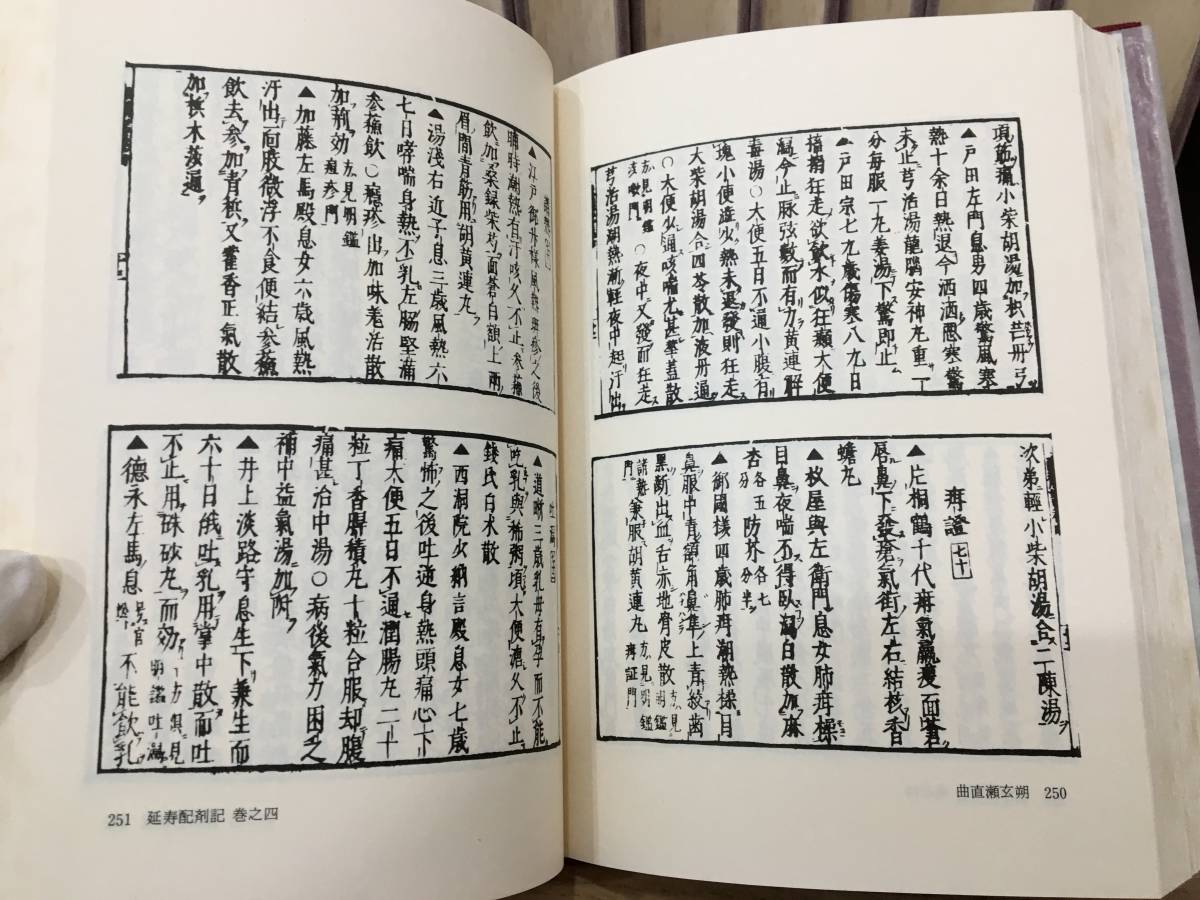 項筋痛小柴胡湯加枳芒丹弓
▲戸田左門息男四歳驚風寒
熱十余日熱退今洒洒悪寒驚
未止芎活湯龍脳安神丸重一
分毎服一九姜湯下驚即止
▲戸田宗七九歳傷寒八九日
揚擲狂走欲飲水似狂類大便
瀉今止脉弦数而有力黄連解
毒湯○大便五日不通小腹有
塊小便造火熱未退発則狂走
大柴胡湯合四苓散加液丹通
○大便少通咳嗽尤甚華蓋散
方見明鑑
咳嗽門
○夜中又発而狂走
芎活湯潮熱漸軽夜中起汗出
次第軽小柴胡湯合二陳湯
疳證 七十
▲片桐鶴千代疳気羸痩面蒼
唇鼻下発瘡気街左右結核香
蟾丸
▲枚屋與左衛門息女肺疳燥
目鼻夜喘不得臥瀉白散加麻
杏各五分防芥各七分半
▲御國様四歳肺疳潮熱燥目
鼻眼中青額角鼻隼上青紋歯
黒断出血舌赤地骨皮散方見明鑑
諸熱門兼服胡黄連丸方見明鑑疳証門
曲直瀬玄朔 250
▲江戸御丹様風熱班疹之後
晡時潮熱有汗咳久不止参蘇
飲加桑緑柴芍面蒼白額上両
眉間青筋用胡黄連丸
▲湯浅右近子息三歳風熱六
七日哮喘身熱不乳左腸堅痛
参蘇飲○癮疹出加味羌活散
加荊効方見明鑑癮疹門
▲加藤左馬殿息女六歳風熱
汗出面股微浮不食便結参蘇
飲去参加青梹又藿香正氣散
加梹木莎通
▲道晰三歳乳母有孕而不能
吃乳與怖粥頃大便漉久不止
銭氏白朮散
▲西洞院少納言殿息女七歳
驚怖之後吐逆身熱頭痛心下
痛大便五日不通潤腸丸二十
粒丁香脾積丸十粒合服却腹
痛甚治中湯○病後氣力困乏
補中益氣湯加附
▲井上淡路守息生下兼生而
六十日俄吐乳用掌中散而吐
不止用硃砂丸而効方倶見明鑑吐瀉
▲徳永左馬息不能飲乳
251 延寿配剤記 巻之四